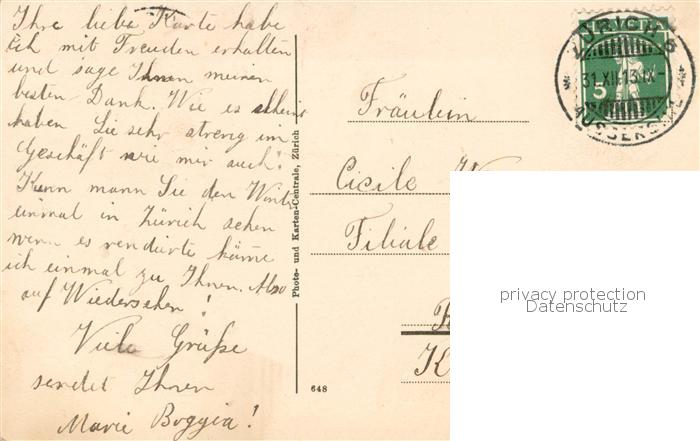 Ihre liebe Karte habe
ich mit Freuden erhalten
und sage Ihnen meinen
besten Dank. Wie es scheint
haben Sie sehr streng im
Geschäft wie mir auch.
Kann mann Sie den Winter
einmal in Zürich sehen
wenn es rendirte käme
ich einmal zu Ihnen. Also
auf Wiedersehen!
Viele Grüße
sendet Ihnen
Marie Boggia!
Photo- und Karten-Centrale, Zürich
648
ZÜRICH 6
31.XII.13.IX-
AUSSERSIHL
5
Fräulein
Cicile W
Filiale
K
privacy protection
Datenschutz